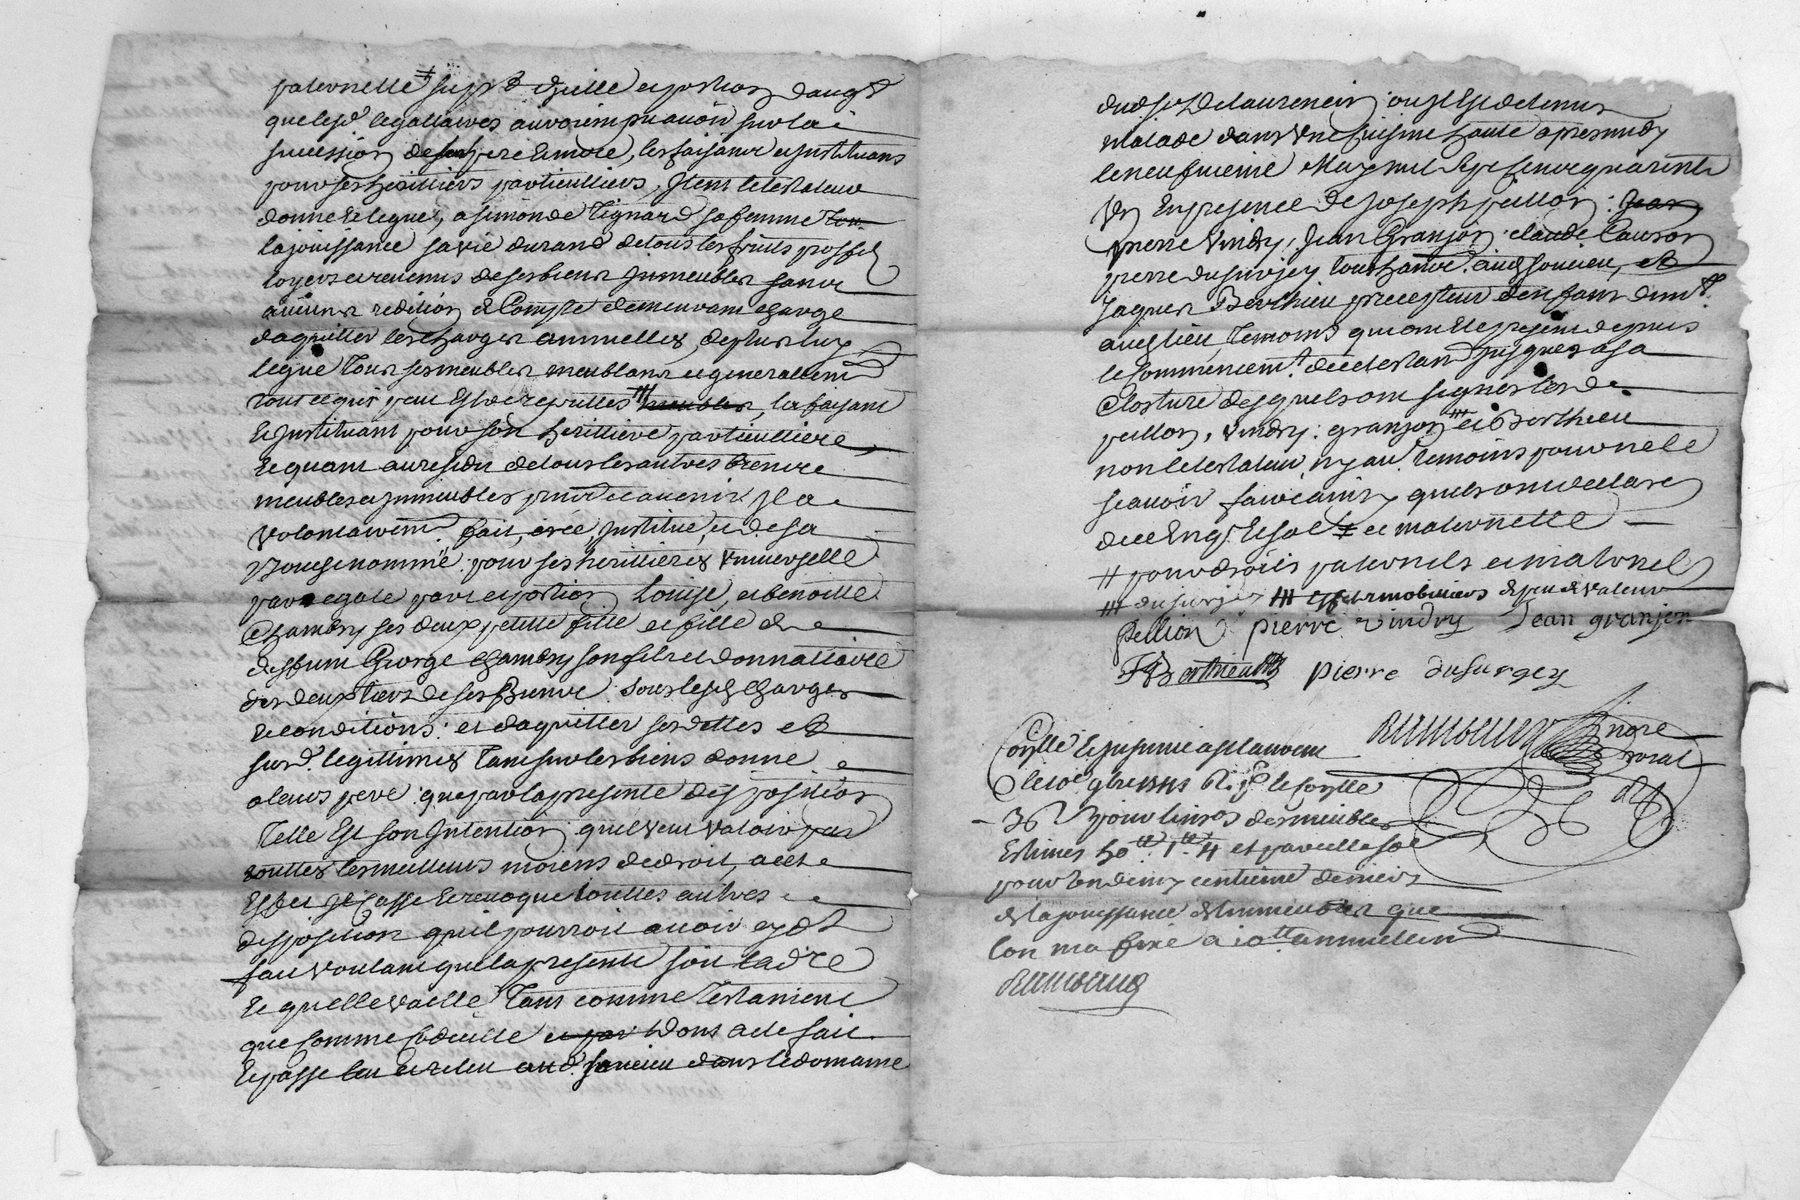 paternelle # supd. quelle et portion daugt
que lesd. legataires auroient pu avoir sur la
succession de feu pere et mere, les faisant et Instituant
pour ses heritiers particulliers, Item le testateur
donne et legue, a simonde Tignard sa femme
la jouissance sa vie durand de tous les fruits proffit
loyers et revenus de ses biens Immeubles sans
aucune redition de Compte demeurant charge
daquitter les charges annuelles, de plus luy
legue Tous ses meubles meublans et generallement
tout ce qui peut Estre reputtes ### meubles, la faisant
et Instituant pour son herittiere particulliere,
et quant au residu de tous les autres biens
meubles et Immeubles presents et avenir Il a
volontairemt. fait, cree, Institue, et de sa
Bouche nommé pour ses herittieres universelle
par egale part et portion Louise, et benoitte
Chambry ses deux petitte fille et fille de
deffunt George Chambry son fils et donnattaire
des deux tiers de ses Biens sous lesd. Charges
et conditions: et daquitter ses dettes et
sesd. legittimes Tant sur les biens donne
a leurs pere que par la presente disposition
Telle Est son Intention quil veut valoir par
touttes les meilleurs moiens de droit, a cet
Effet Il Casse et revoque touttes autres
disposition quil pourroit avoir cy dt
fait voulant que la presente soit la dre
et quelle vaille Tant comme Testament
que comme Codicille et par Dont acte fait
et passe leu et releu aud. soucieu dans le domaine
dud. sr Delaurencin ou Il Est detenus
malade dans une cuisine haute apres midy
le neufvieme May mil Sept Cent quarente
un En presence de Joseph pellion: Jean
pierre vindry, Jean Granjon: claude Caveron
pierre dusurjey tous habt. aud soucieu, et
Jaques Berthieu precepteur denfans demt.
aud lieu Temoins qui ont Ete present depuis
le Commencemt. dud testamt Jusques a sa
Closture desquels ont signes lesd.
pellion, vindry: granjon ### et Berthieu
non le testateur ny aut. temoins pour ne le
scavoir faire ainsy quils ont declare
de ce Enqt. Et sol # et maternelle
# pour droits paternels et maternel
## dusurgey ### Effets mobiliers de peu de valeur
Pellion pierre vindry Jean granjon
J Berthieu pierre dusurgey
nore
royal
Controllé et Insinué
36 s pour livres des meubles
Estimes 50 tt
pour le demy centieme deniers
de la jouissance des Immeubles que
lon ma fixé a 10 tt annuellement